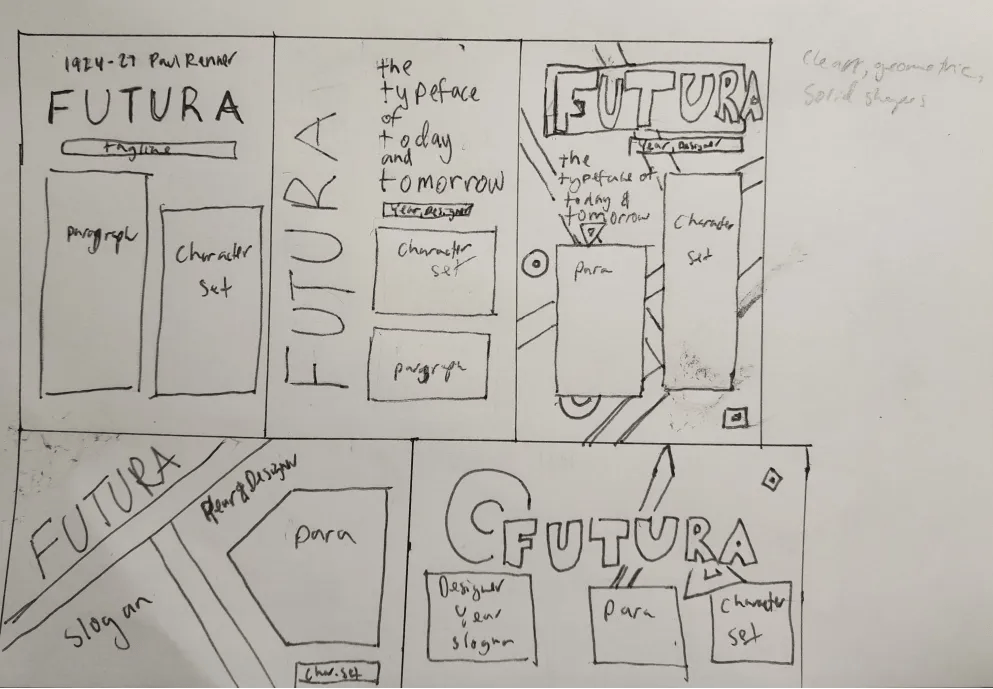 1924-27 Paul Renner
FUTURA
tagline
paragraph
Character
set
FUTURA
the
typeface
of
today
and
tomorrow
Year, Designer
Character
set
paragraph
FUTURA
Year, Designer
the
typeface of
today &
tomorrow
Para
Character
set
Clean, geometric,
solid shapes
FUTURA
Year & Designer
slogan
Para
Char. set
FUTURA
Designer
Year
slogan
Para
Character
set